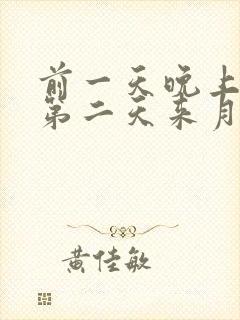 前一天晚上
第二天来月
黄佳敏